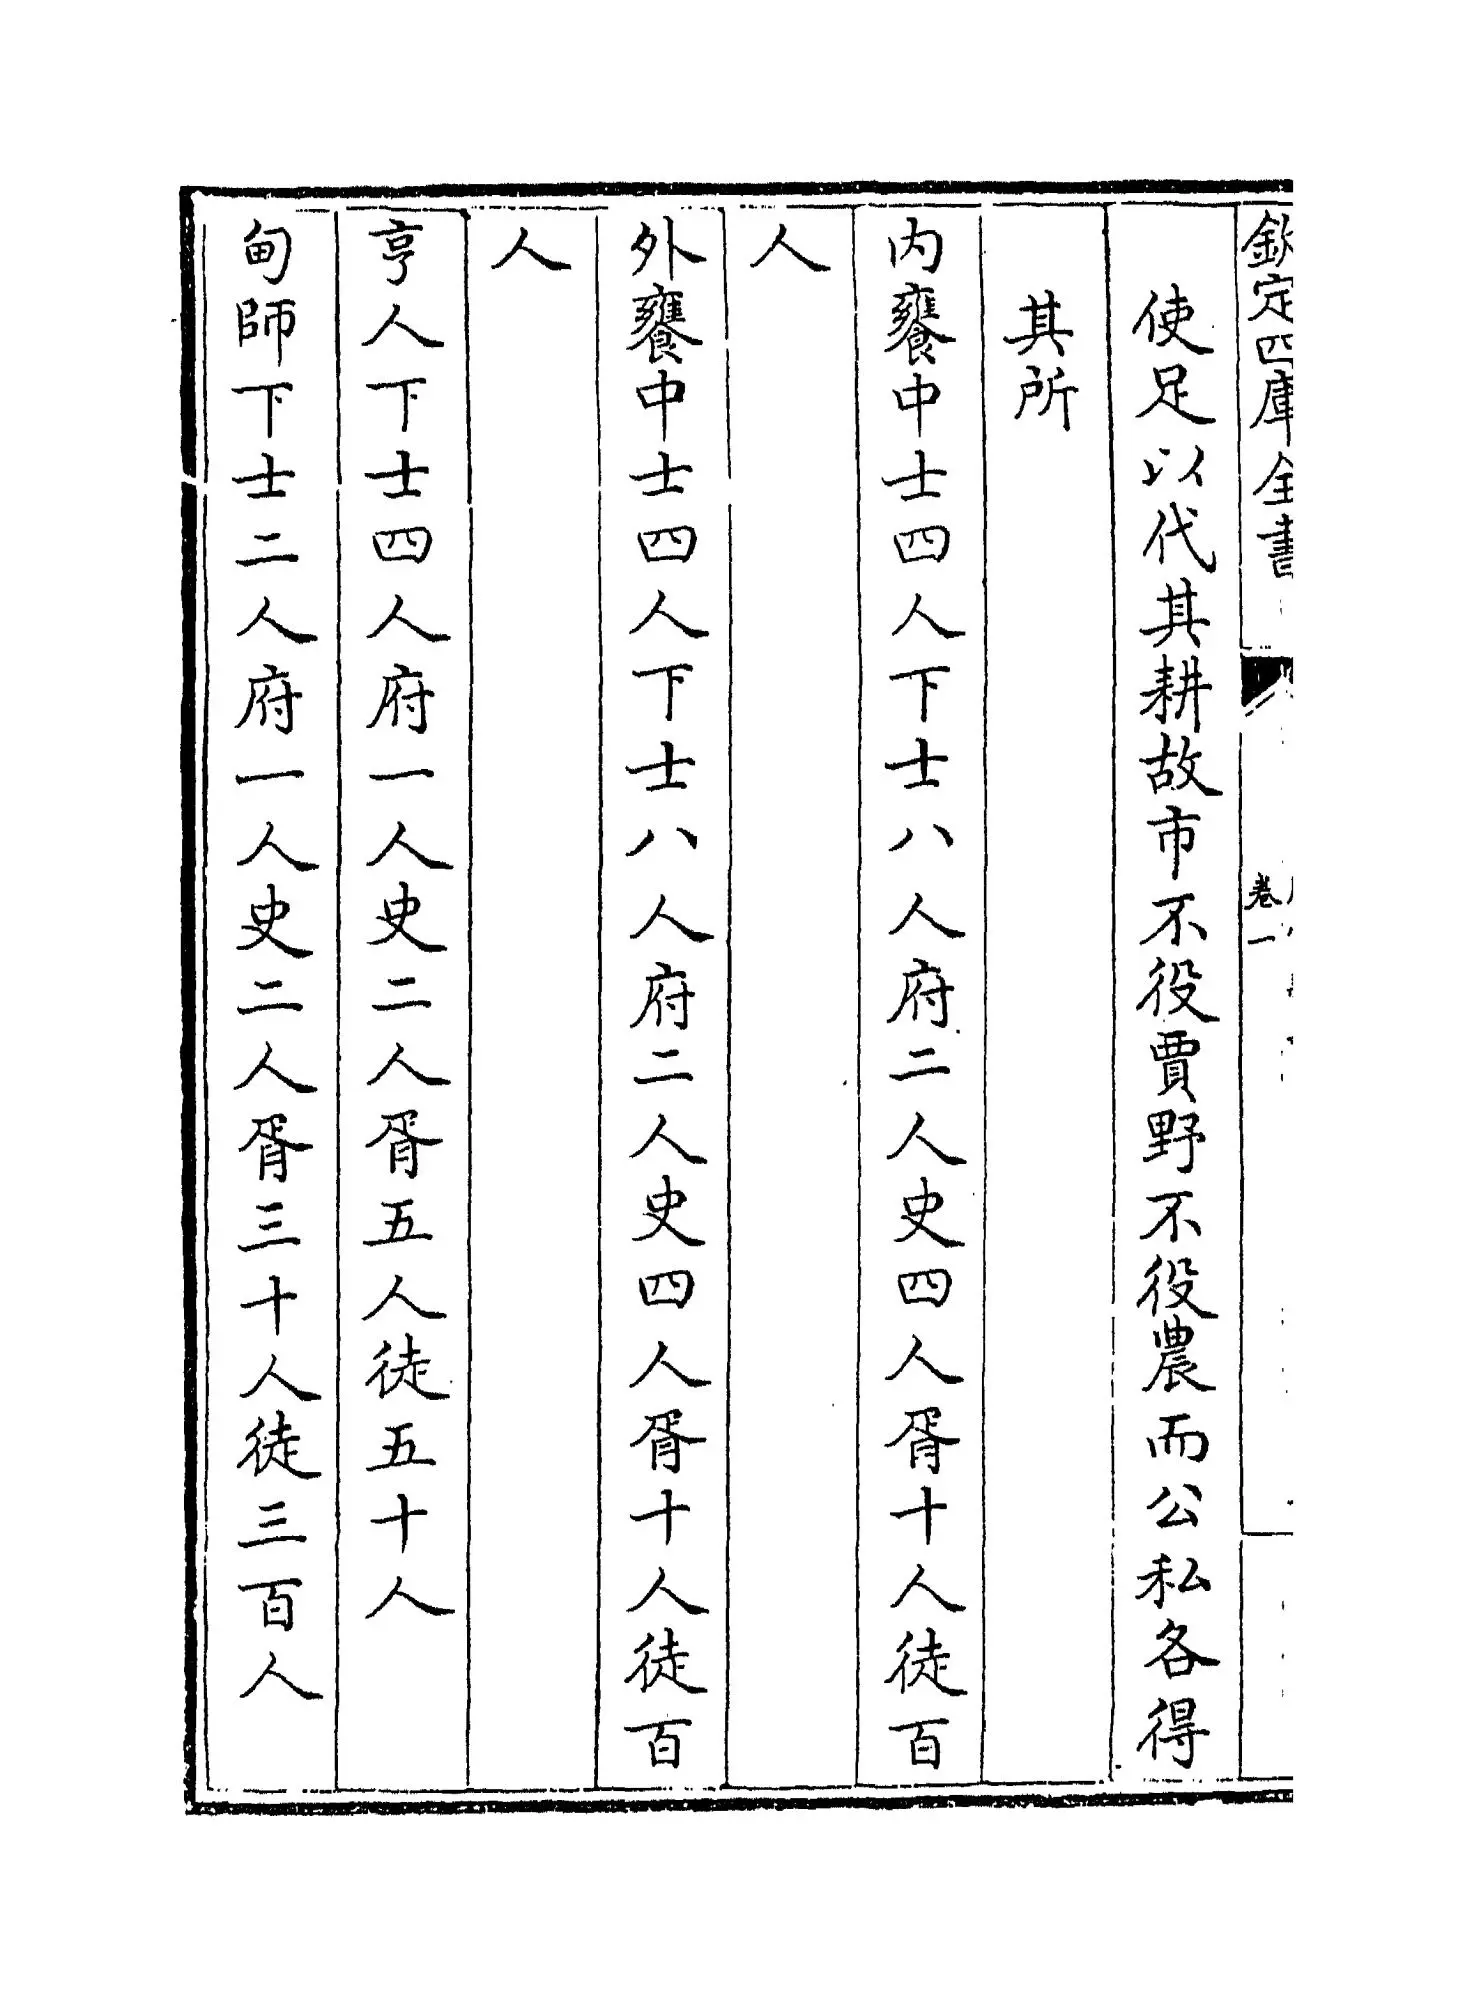 欽定四庫全書
卷一
使足以代其耕故市不役賈野不役農而公私各得
其所
内饔中士四人下士八人府二人史四人胥十人徒百
人
外饔中士四人下士八人府二人史四人胥十人徒百
人
亨人下士四人府一人史二人胥五人徒五十人
甸師下士二人府一人史二人胥三十人徒三百人